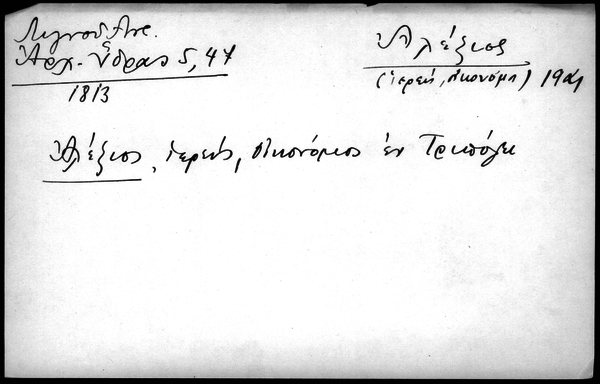 Λιγνοῦ Ἀντ.
Ἀρχ. Ὕδρας 5, 47
1813
Ἀλέξιος
(ἱερεύς, οἰκονόμος) 19ος
Ἀλέξιος, ἱερεύς, οἰκονόμος ἐν Τριπόλει